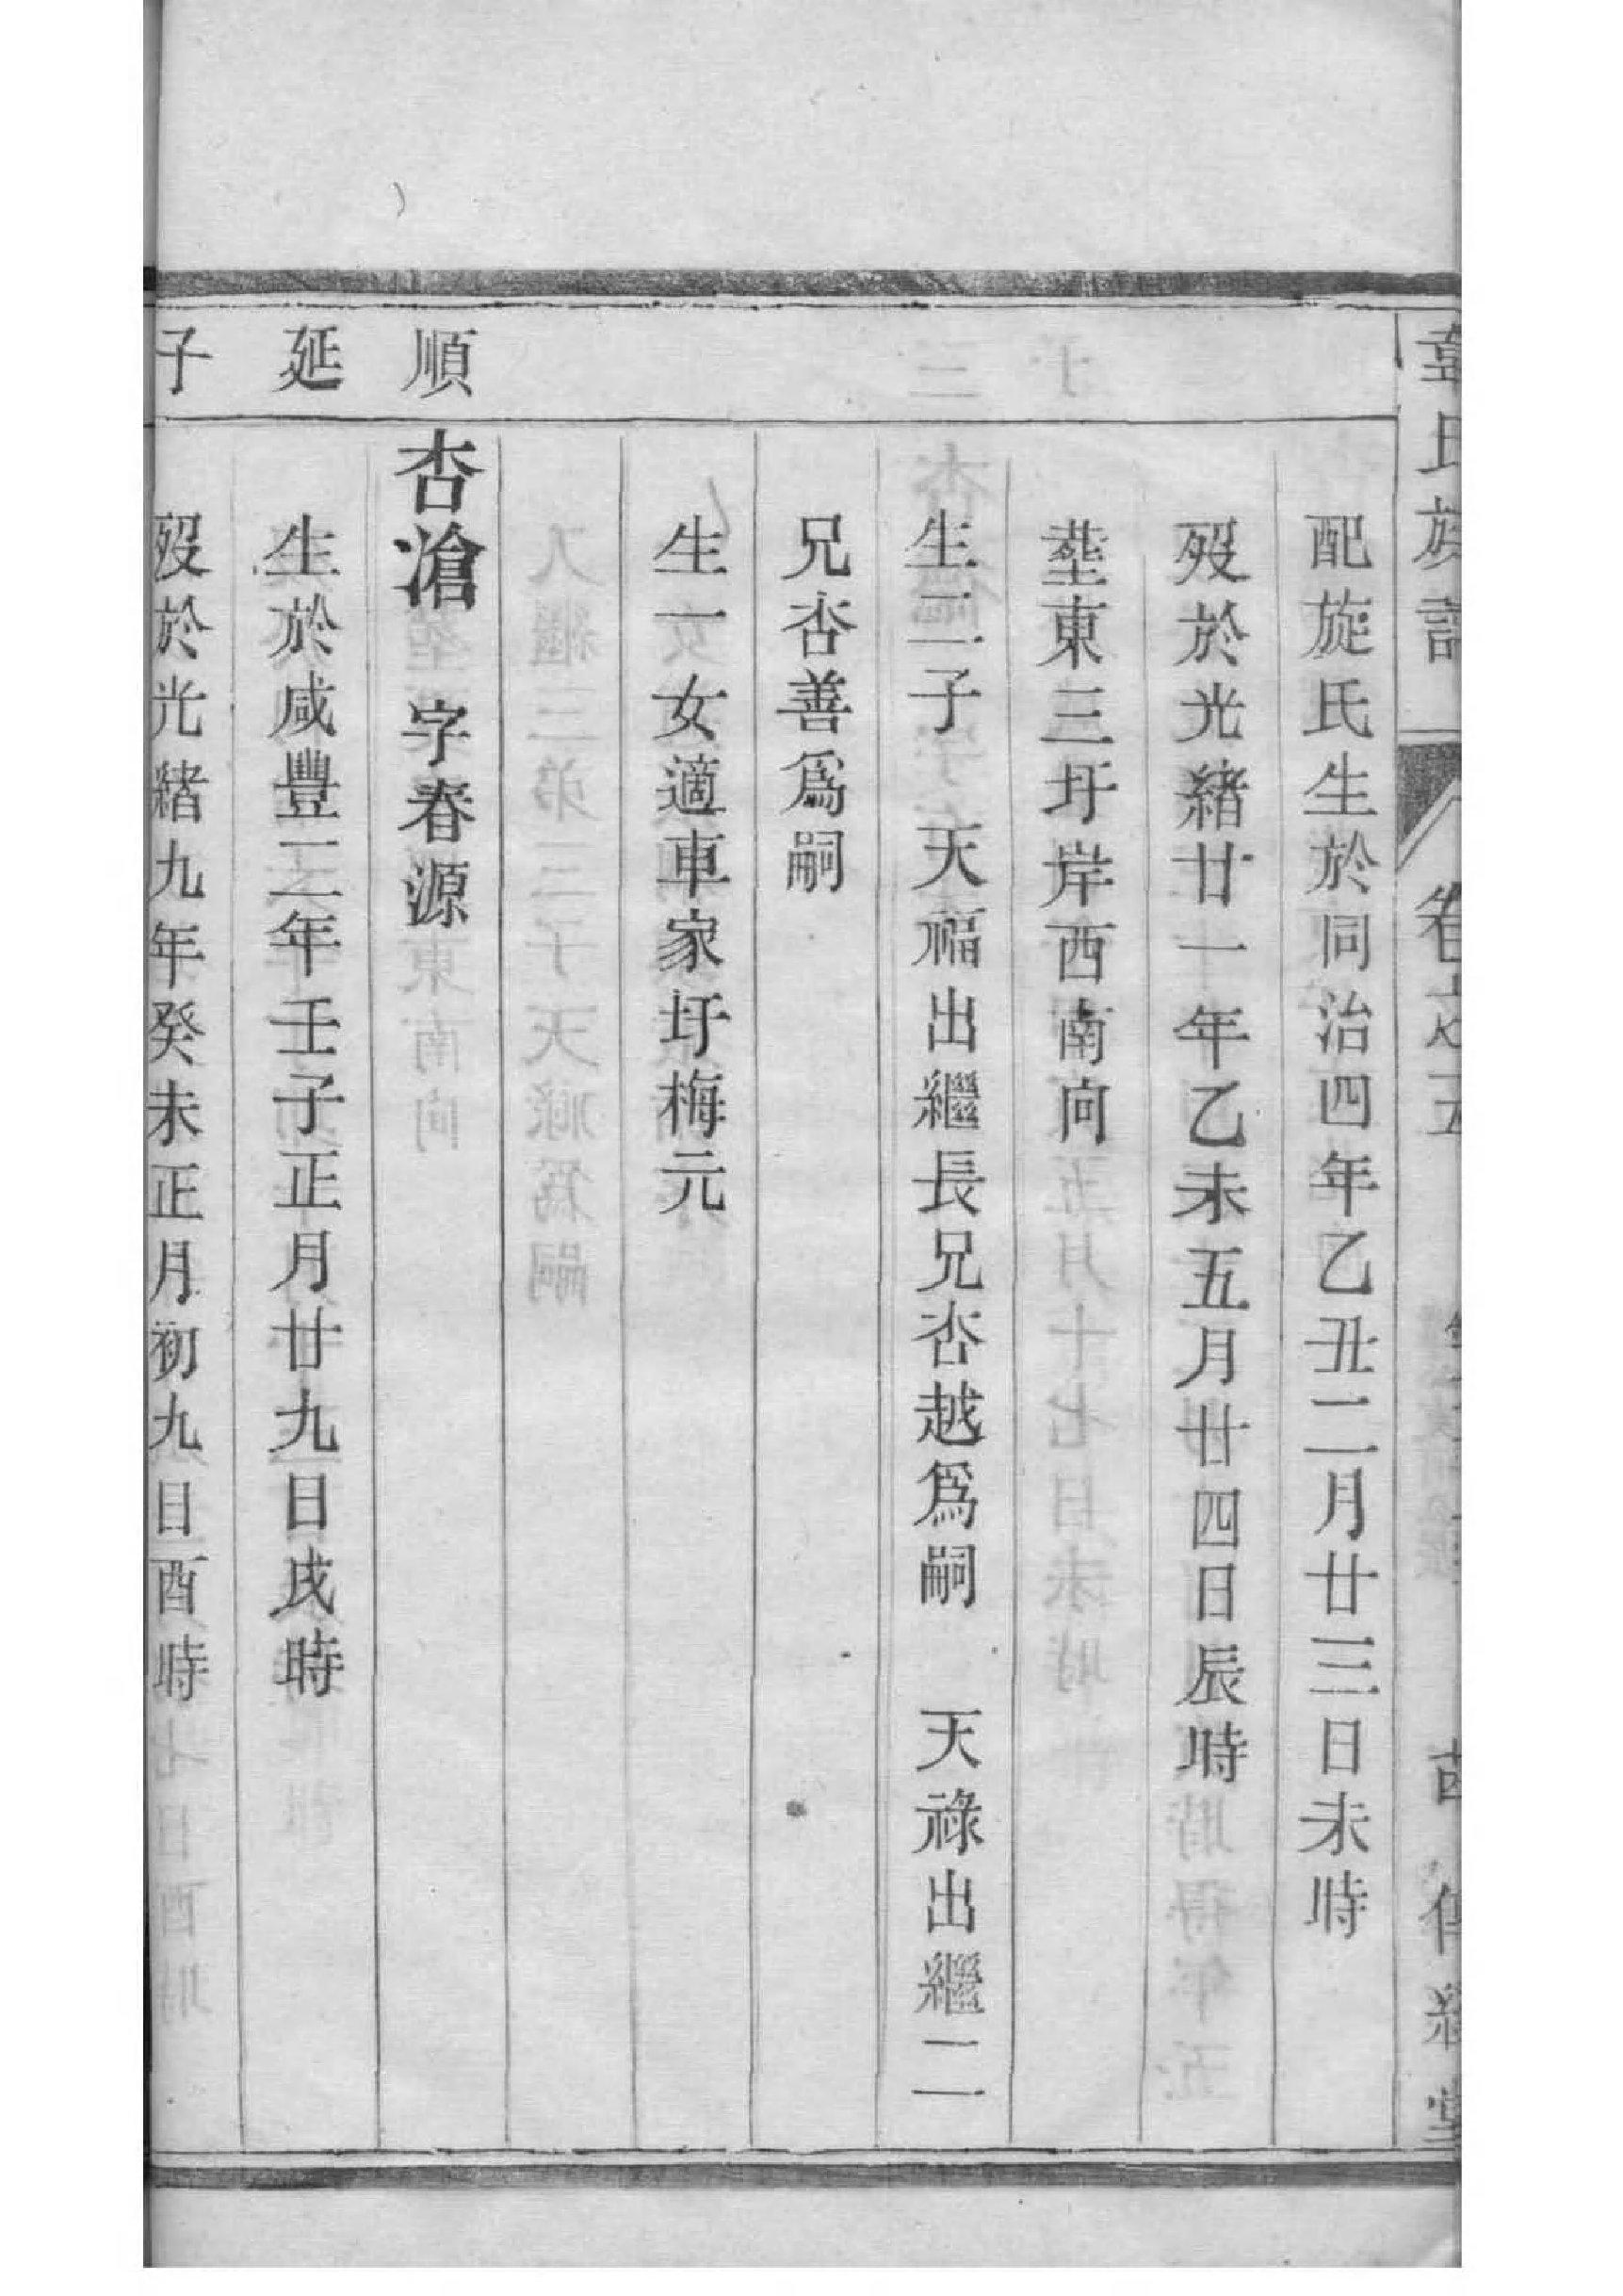 氏族譜
卷之五
配旋氏生於同治四年乙丑二月廿三日未時
歿於光緒廿一年乙未五月廿四日辰時
塟東三圩岸西南向
生二子 天福出繼長兄杏越爲嗣 天祿出繼二
兄杏善爲嗣
生一女適車家圩梅元
順延子
杏滄 字春源
生於咸豐二年壬子正月廿九日戌時
歿於光緒九年癸未正月初九日酉時